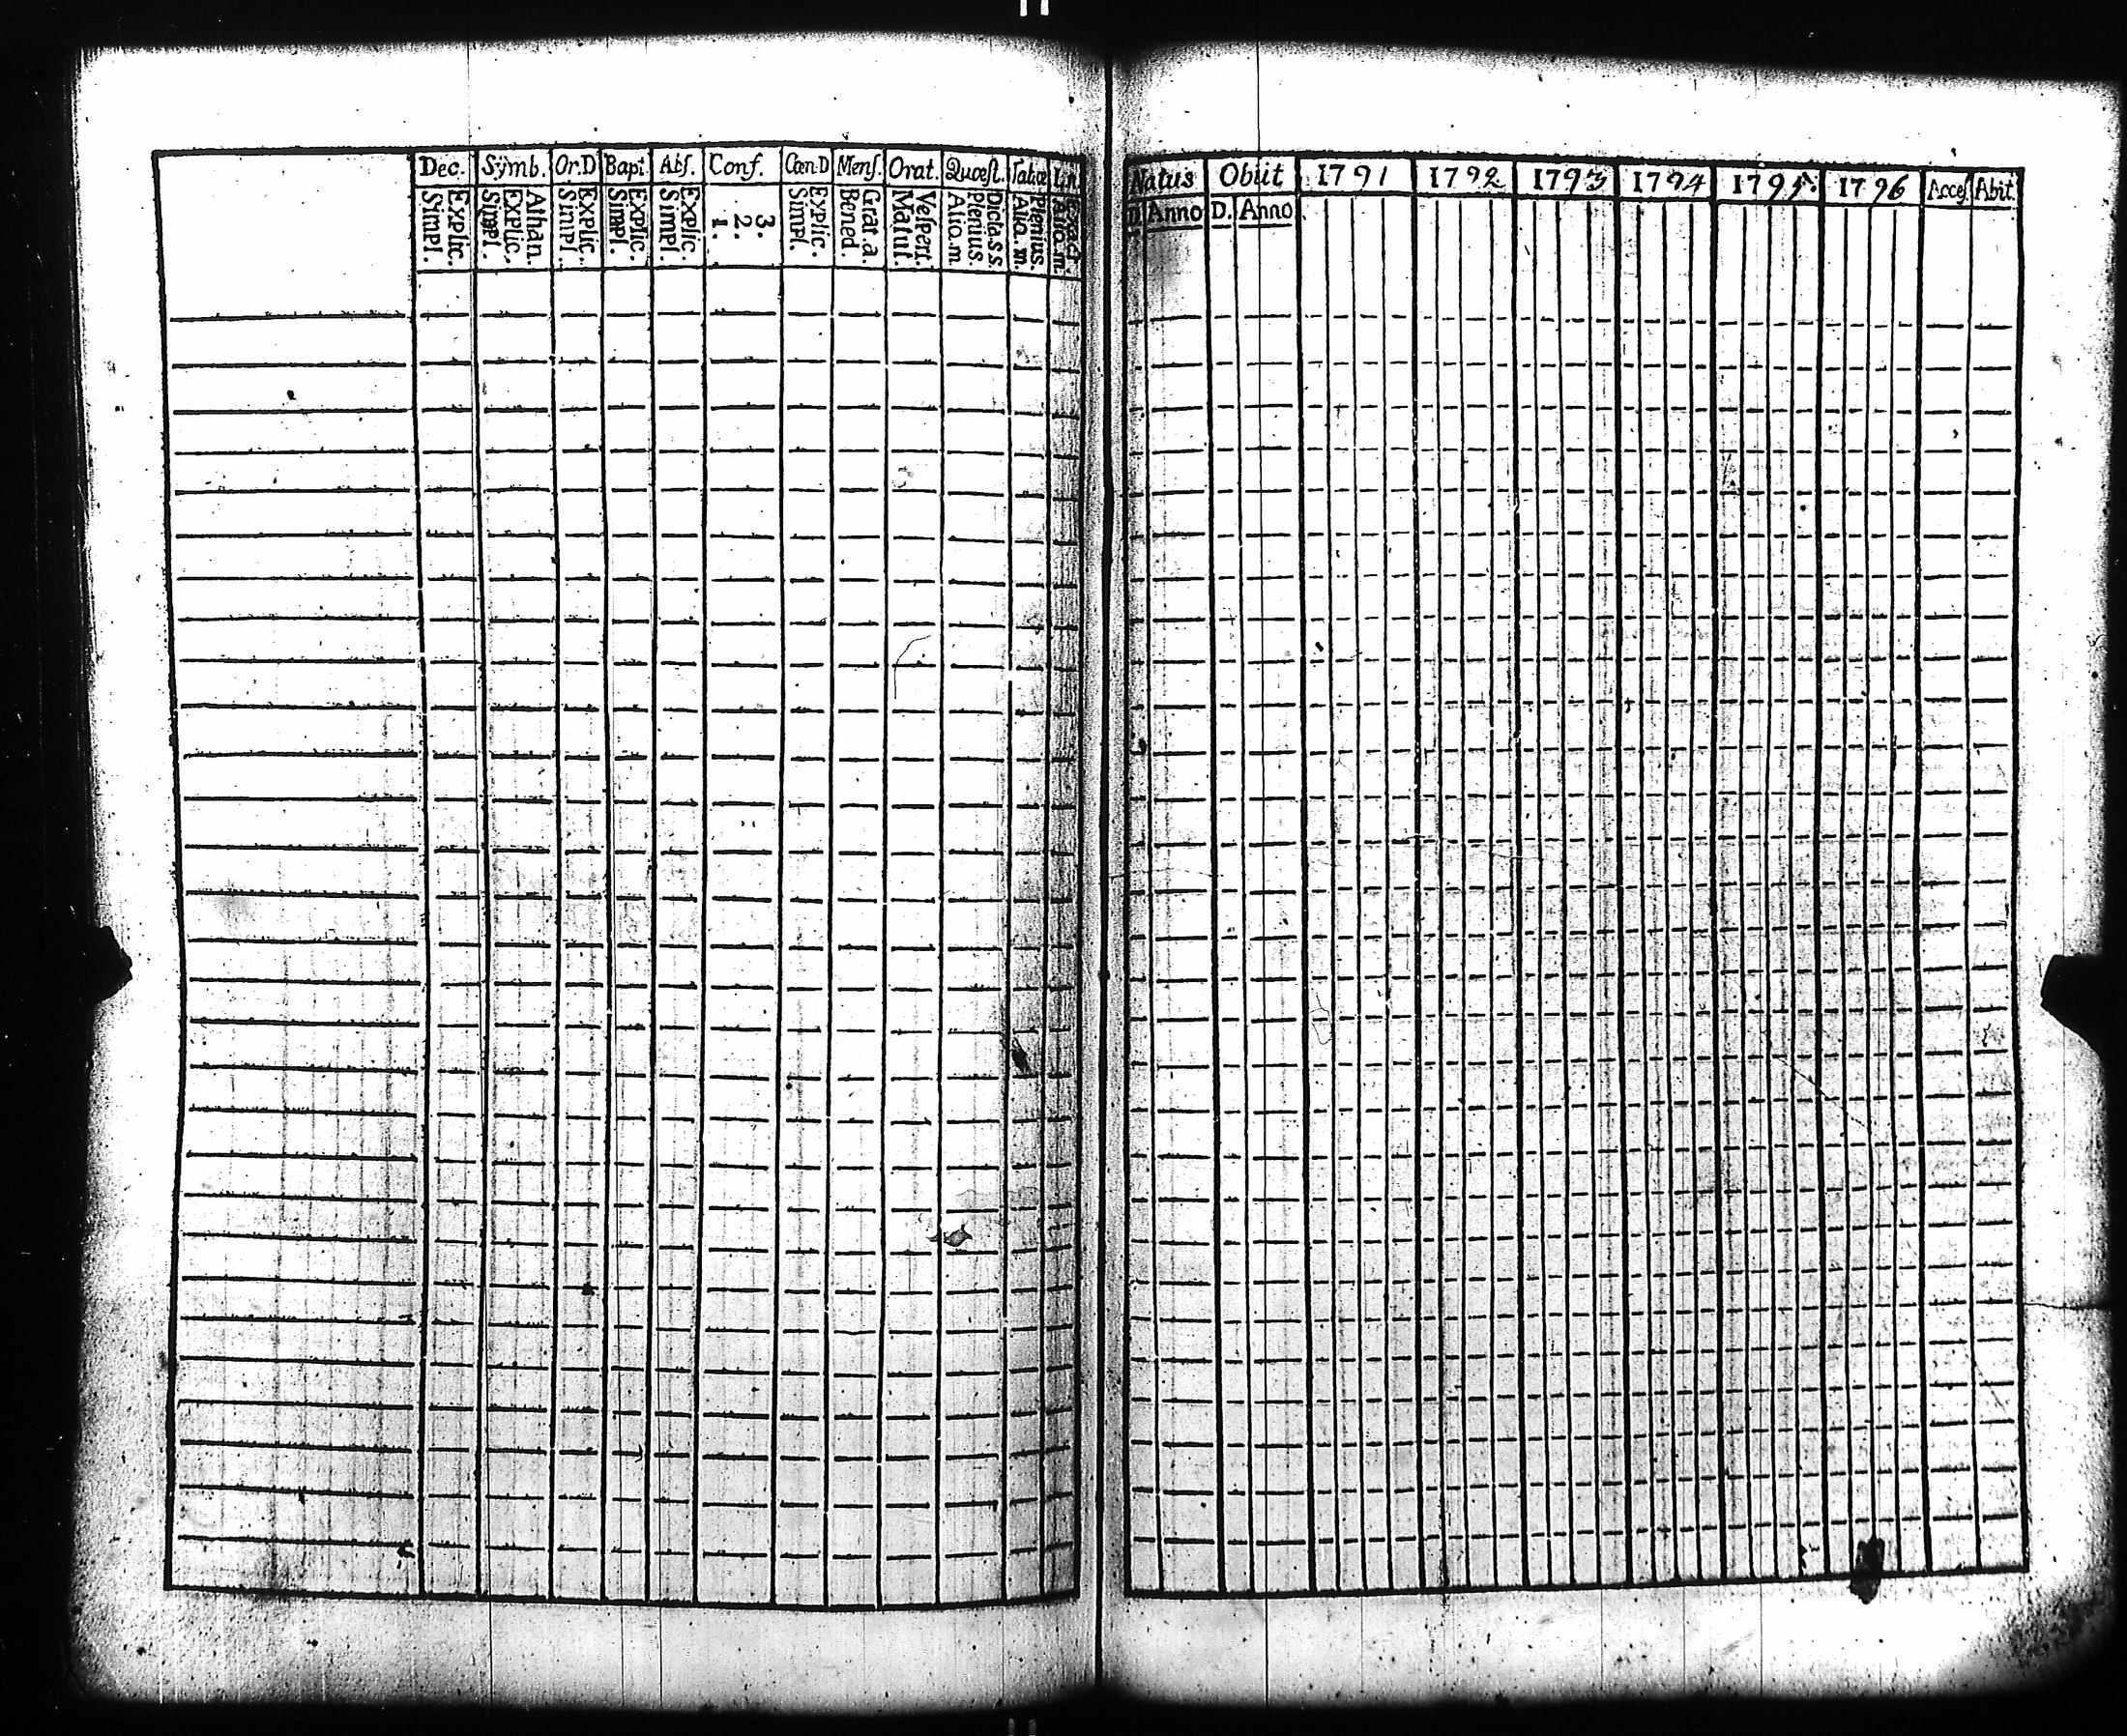 Dec. Sÿmb. Or.D Bapt. Abſ. Conſ. Cœn.D Menſ. Orat. Quœſt. Tabœ Lin.
Simpl. Explic. Simpl. Explic. Athan. Simpl. Explic. Simpl. Explic. Simpl. Explic. 1. 2. 3. Simpl. Explic. Bened. Grat.a Matut. Veſpert. Alio.m Plenius Dicta.s.s. Alio.m. Plenius. Alio.m. Exact.
Natus Obiit 1791 1792 1793 1794 1795 1796 Acceſ. Abit.
D. Anno D. Anno